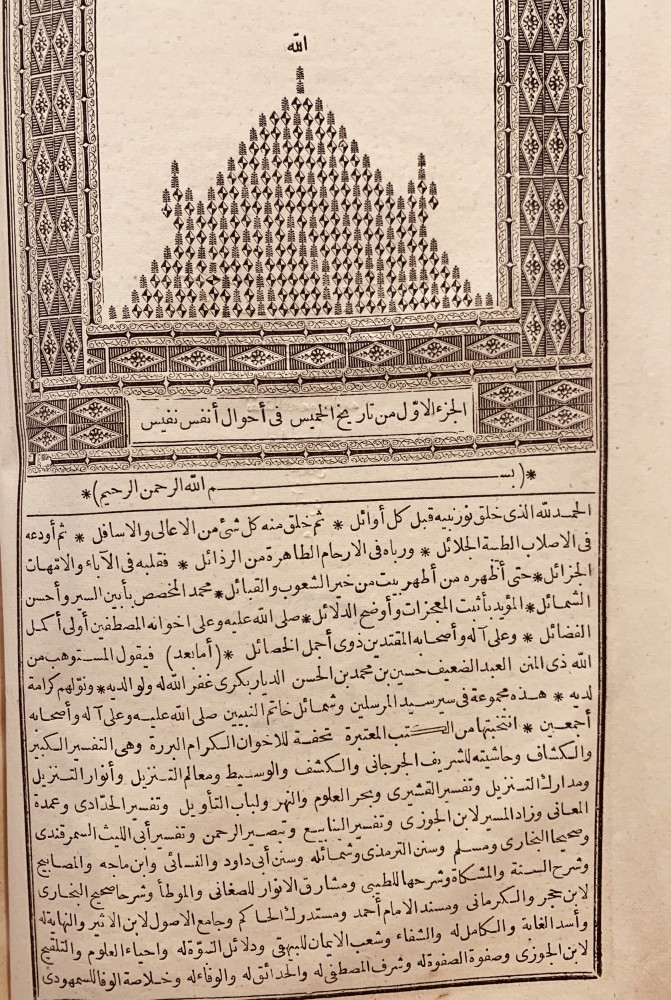 الله
الجزء الاوّل من تاريخ الخميس فى أحوال أنفس نفيس
*(بسم الله الرحمن الرحيم)*
الحمد لله الذى خلق نور نبيه قبل كل أوائل * ثم خلق منه كل شئ من الاعالى والاسافل * ثم أودعه
فى الاصلاب الطيبة الجلائل * ورباه فى الارحام الطاهرة من الرذائل * فقلبه فى الآباء والامهات
الجزائل * حتى أظهره من أطهر بيت من خير الشعوب والقبائل * محمد المخصص بأبين السير وأحسن
الشمائل * المؤيد بأثبت المعجزات وأوضح الدلائل * صلى الله عليه وعلى اخوانه المصطفين أولى أكمل
الفضائل * وعلى آله وأصحابه المقتدين ذوى أجمل الخصائل * (أما بعد) فيقول المستوهب من
الله ذى المنن العبد الضعيف حسين بن محمد بن الحسن الديار بكرى غفر الله له ولوالديه * ونوّلهم كرامة
لديه * هذه مجموعة فى سير سيد المرسلين وشمائل خاتم النبيين صلى الله عليه وعلى آله وأصحابه
أجمعين * انتخبتها من الكتب المعتبرة تحفة للاخوان الكرام البررة وهى التفسير الكبير
والكشاف وحاشيته للشريف الجرجانى والكشف والوسيط ومعالم التنزيل وأنوار التنزيل
ومدارك التنزيل وتفسير القشيرى وبحر العلوم والنهر ولباب التأويل وتفسير الحدّادى وعمدة
المعانى وزاد المسير لابن الجوزى وتفسير الينابيع وتبصير الرحمن وتفسير أبى الليث السمرقندى
وصحيحا البخارى ومسلم وسنن الترمذى وشمائله وسنن أبى داود والنسائى وابن ماجه والمصابيح
وشرح السنة والمشكاة وشرحها للطيبى ومشارق الانوار للصغانى والموطأ وشرحا صحيح البخارى
لابن حجر والكرمانى ومسند الامام أحمد ومستدرك الحاكم وجامع الاصول لابن الاثير والنهاية له
وأسد الغابة والكامل له والشفاء وشعب الايمان للبيهقى ودلائل النبوّة له واحياء العلوم والتلقيح
لابن الجوزى وصفوة الصفوة له وشرف المصطفى له والحدائق له والوفاء له وخلاصة الوفا للسمهودى